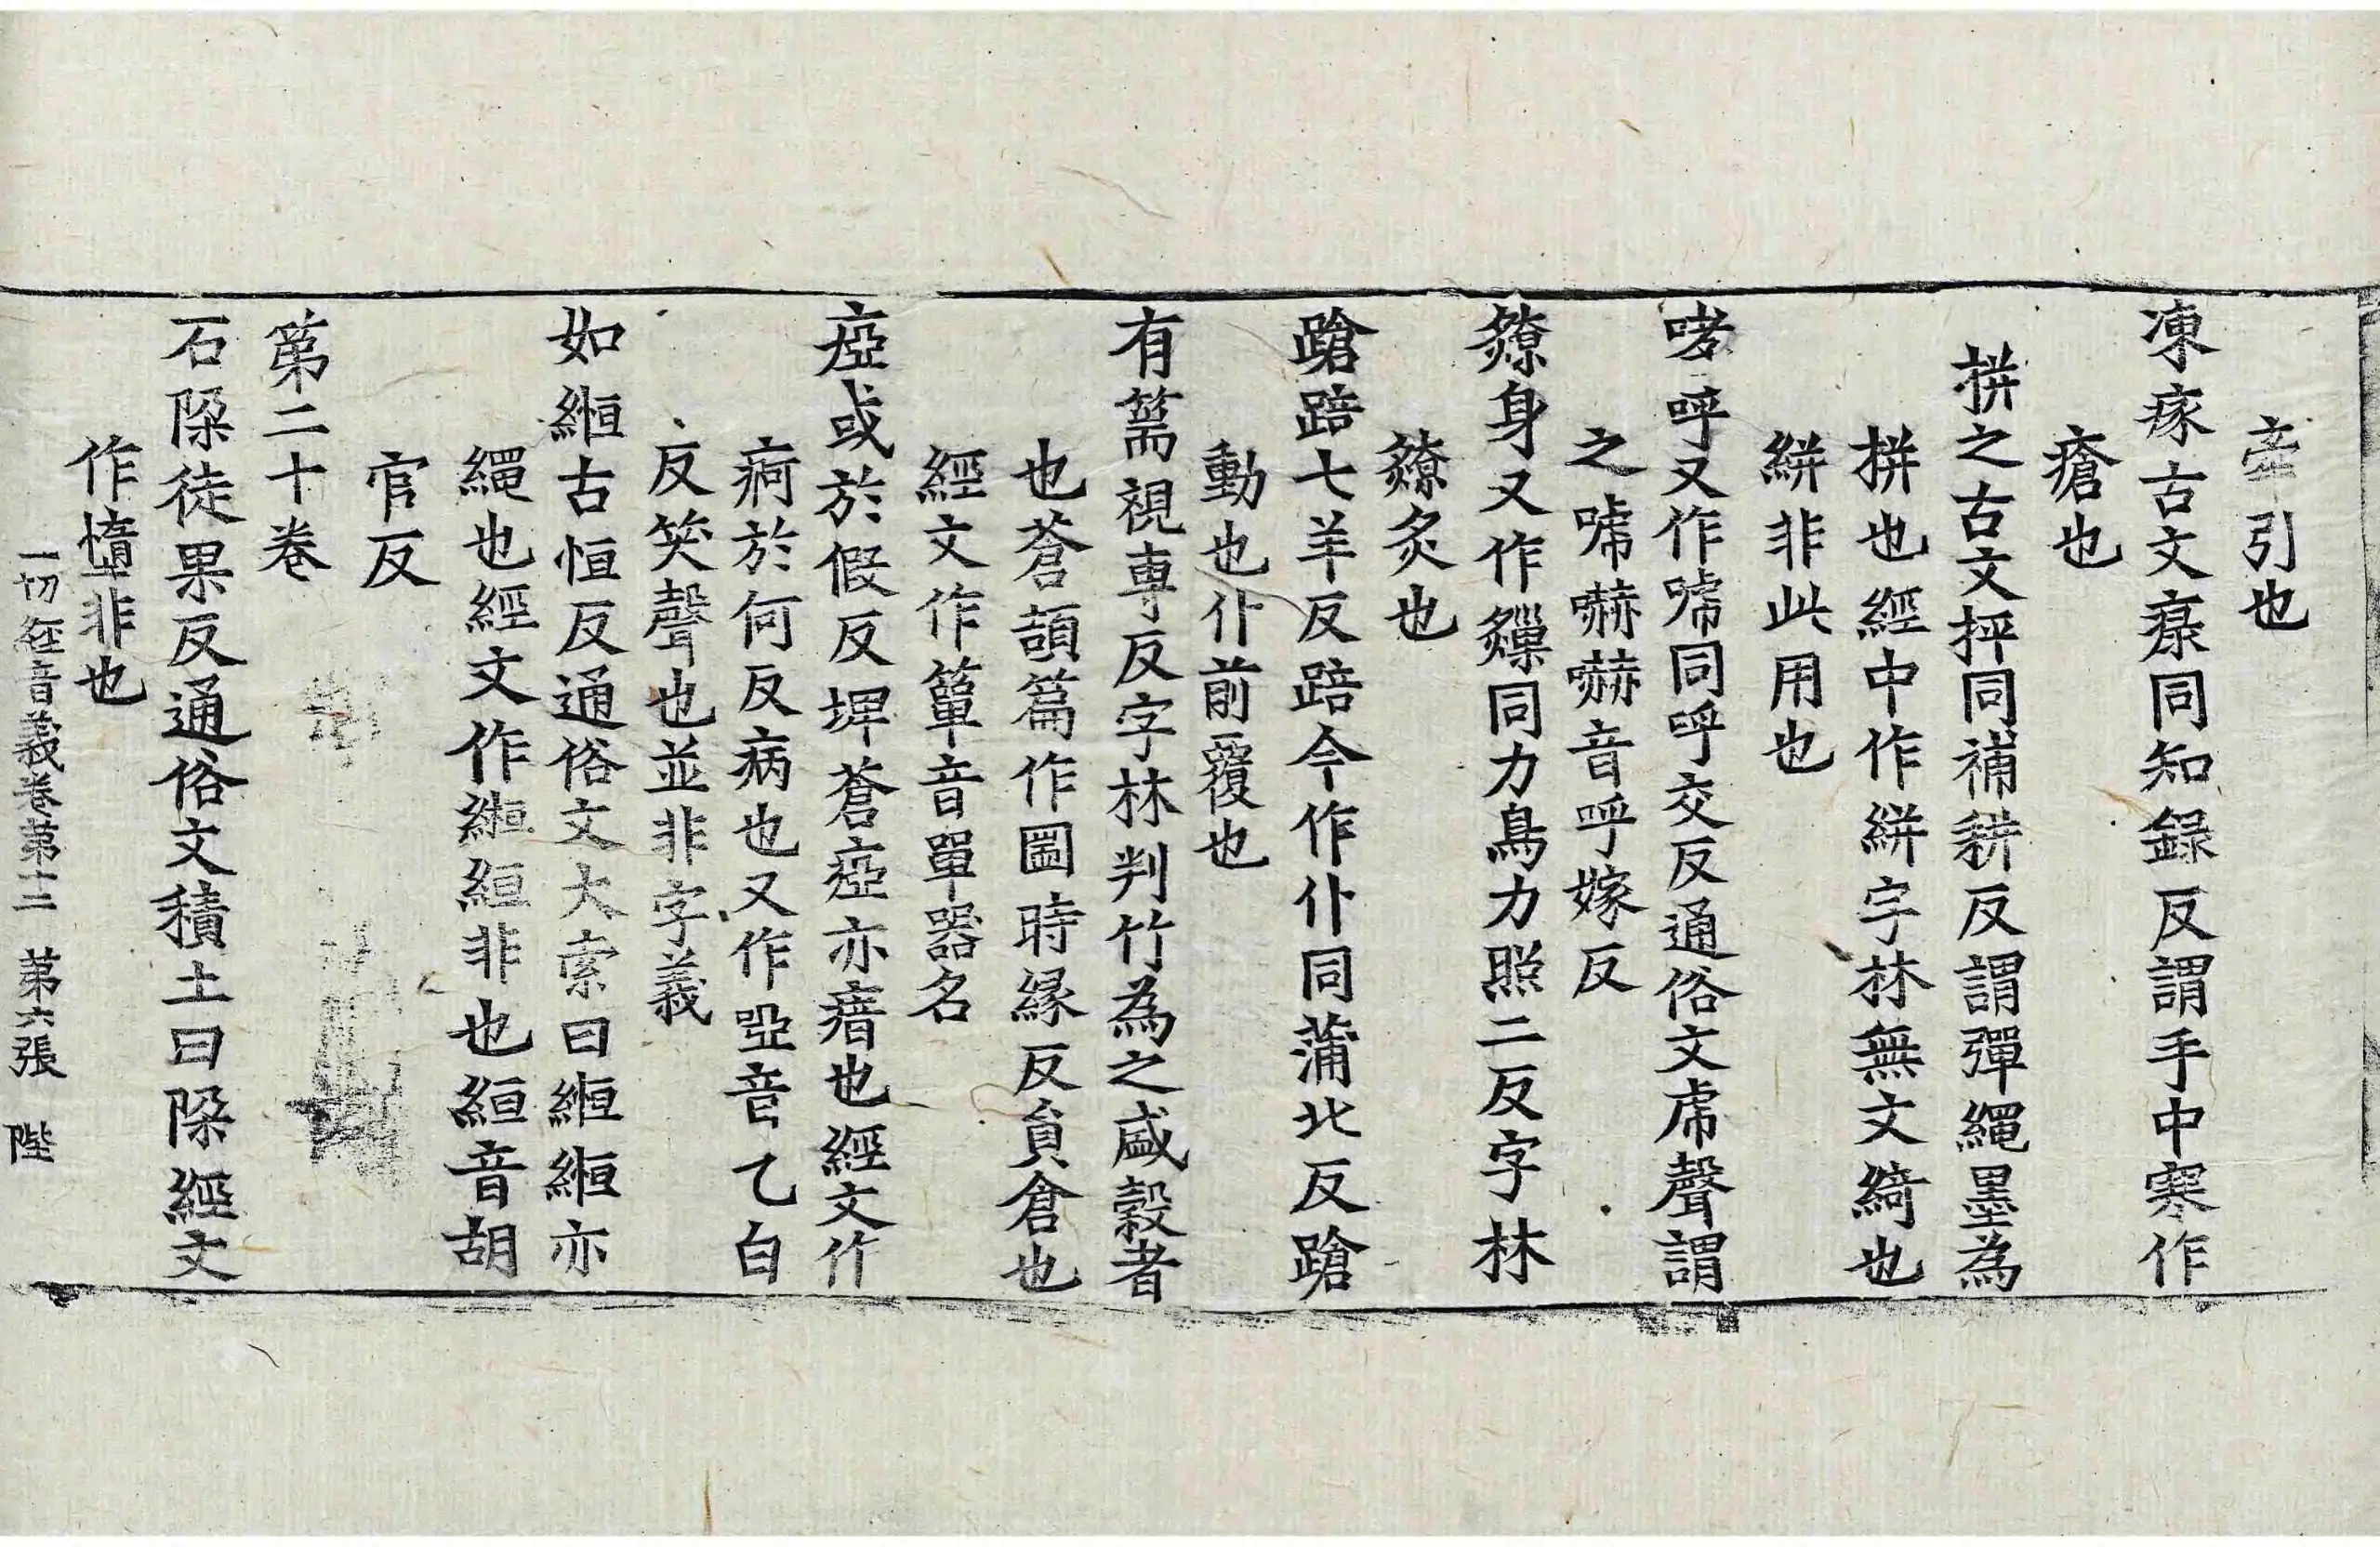 牽引也
凍瘃古文瘃同知録反謂手中寒作
瘡也
拼之古文抨同補耕反謂彈繩墨為
拼也經中作絣字林無文綺也
絣非此用也
哮呼又作唬同呼交反通俗文虎聲謂
之唬嚇嚇音呼嫁反
身又作同力鳥力照二反字林
炙也
蹌踣七羊反踣今作仆同蒲北反蹌
動也仆前覆也
有篅視專反字林判竹為之盛穀者
也蒼頡篇作圌時緣反貟倉也
經文作簞音單器名
瘂或於假反埤蒼瘂亦瘖也經文作
痾於何反病也又作啞音乙白
反笑聲也並非字義
如縆古恒反通俗文大索曰縆縆亦
繩也經文作縆絙非也絙音胡
官反
第二十卷
石垜徒果反通俗文積土曰垜經文
作惰非也
一切經音義卷第十二 第六張 陛